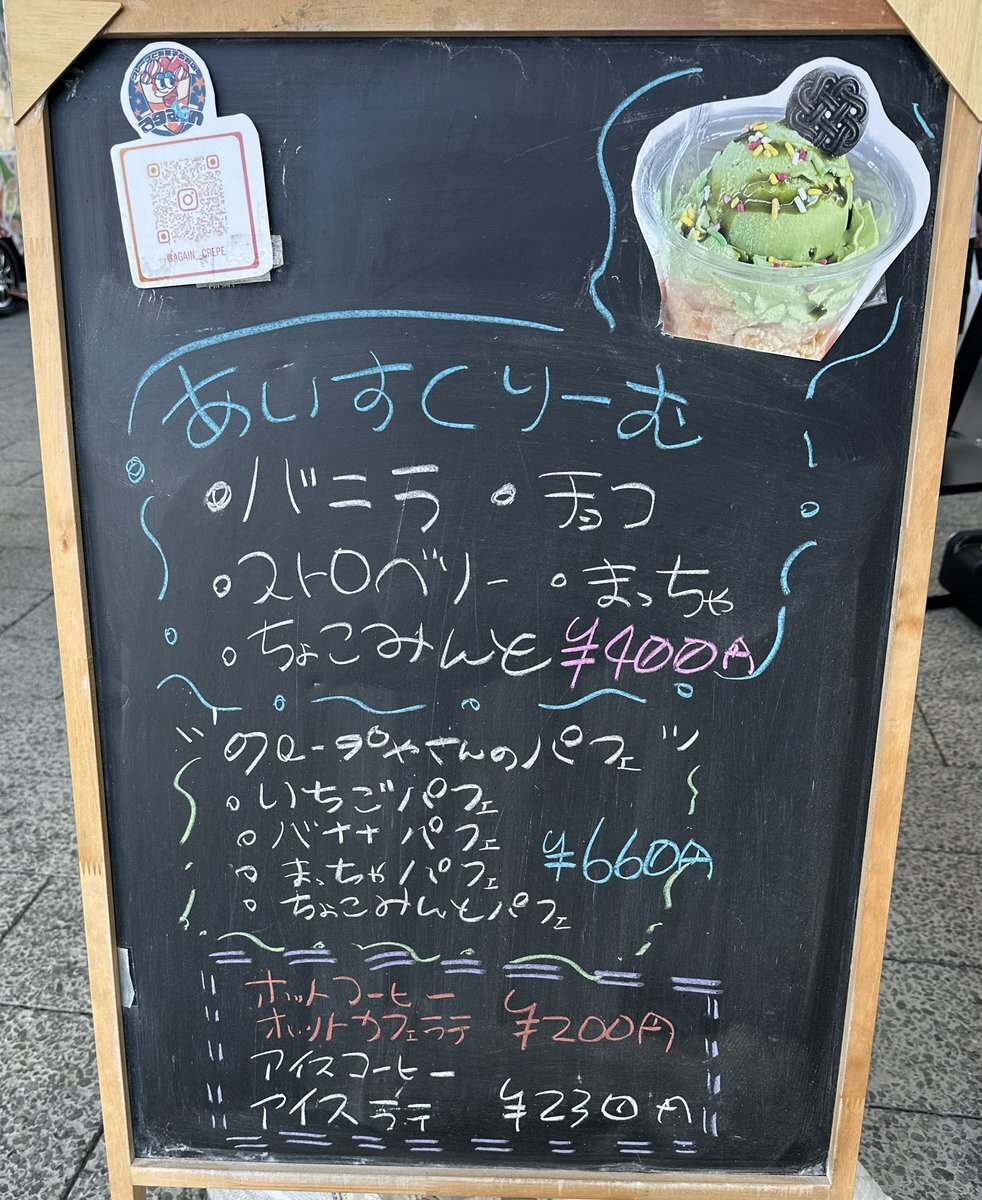 again
@AGAIN_CREPE
あいすくりーむ
・バニラ ・チョコ
・ストロベリー ・まっちゃ
・ちょこみんと ¥400円
クレープやさんのパフェ
・いちごパフェ
・バナナパフェ
・まっちゃパフェ ¥660円
・ちょこみんとパフェ
ホットコーヒー
ホットカフェラテ ¥200円
アイスコーヒー
アイスラテ ¥230円